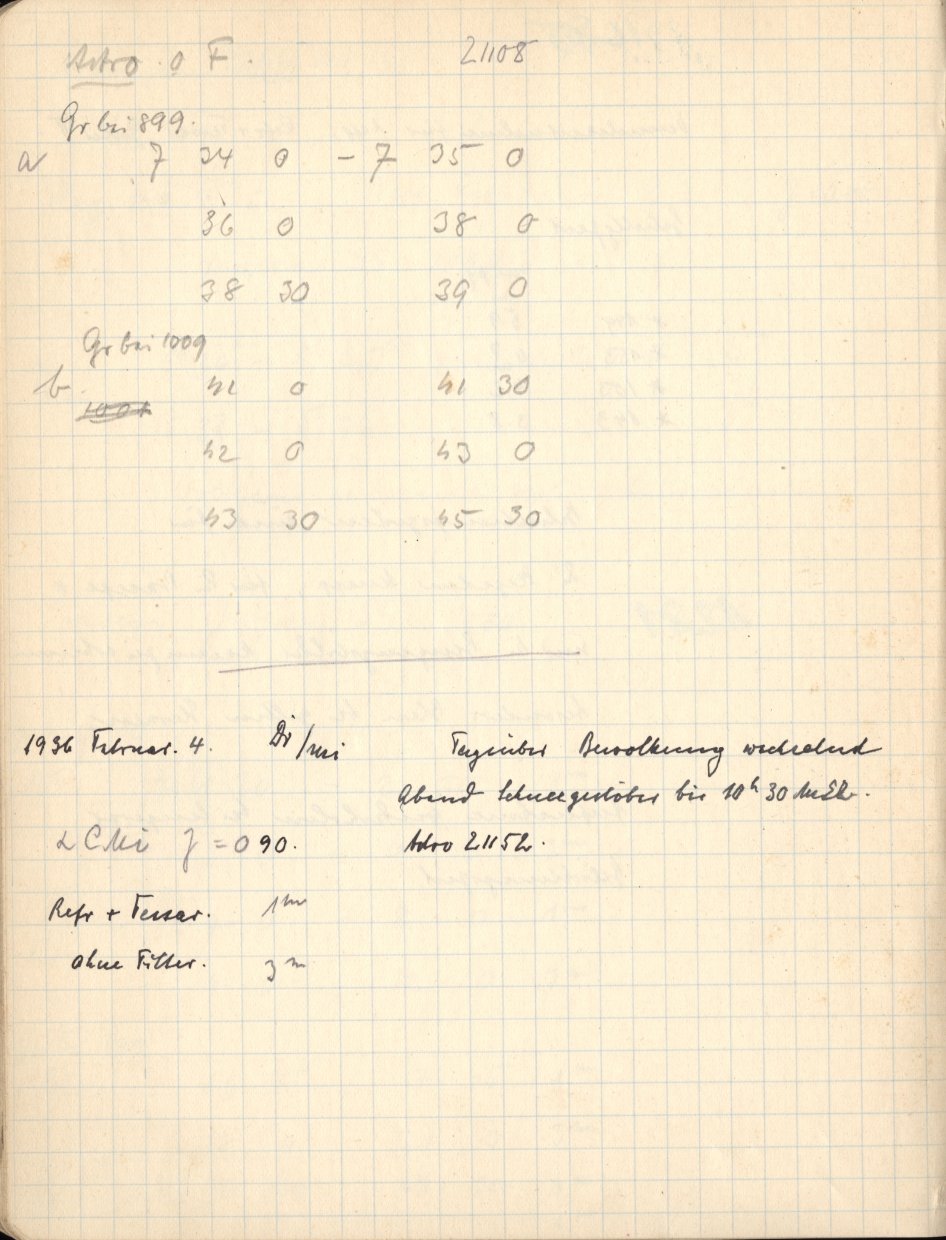 Astro. o F. 21108
Gr bei 899.
a 7 34 0 – 7 35 0
36 0 38 0
38 30 39 0
Gr bei 1009
b 41 0 41 30
42 0 43 0
43 30 45 30
1936 Februar. 4. Di/mi Tagsüber Bewölkung wechselnd
Abend Schneegestöber bis 10h 30 MEZ.
α CMi = 090. Astro 21152.
Refr + Tessar. 1m
ohne Filter. 3m